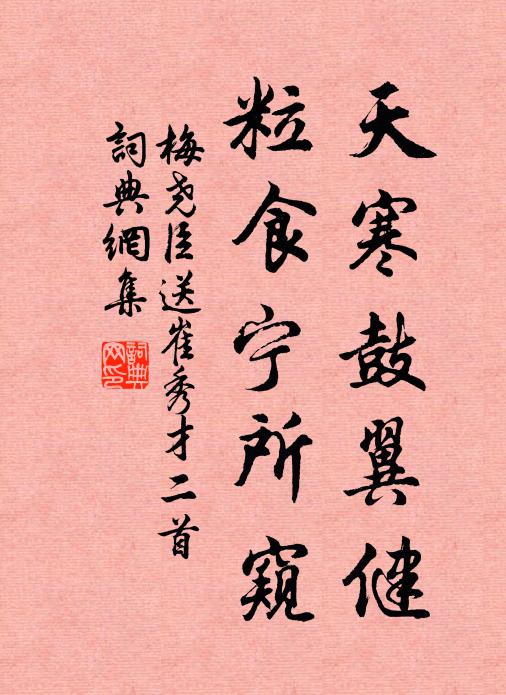 天寒鼓翼健
粒食宁所窥
梅尧臣送崔秀才二首
詞典網集
詞典网印